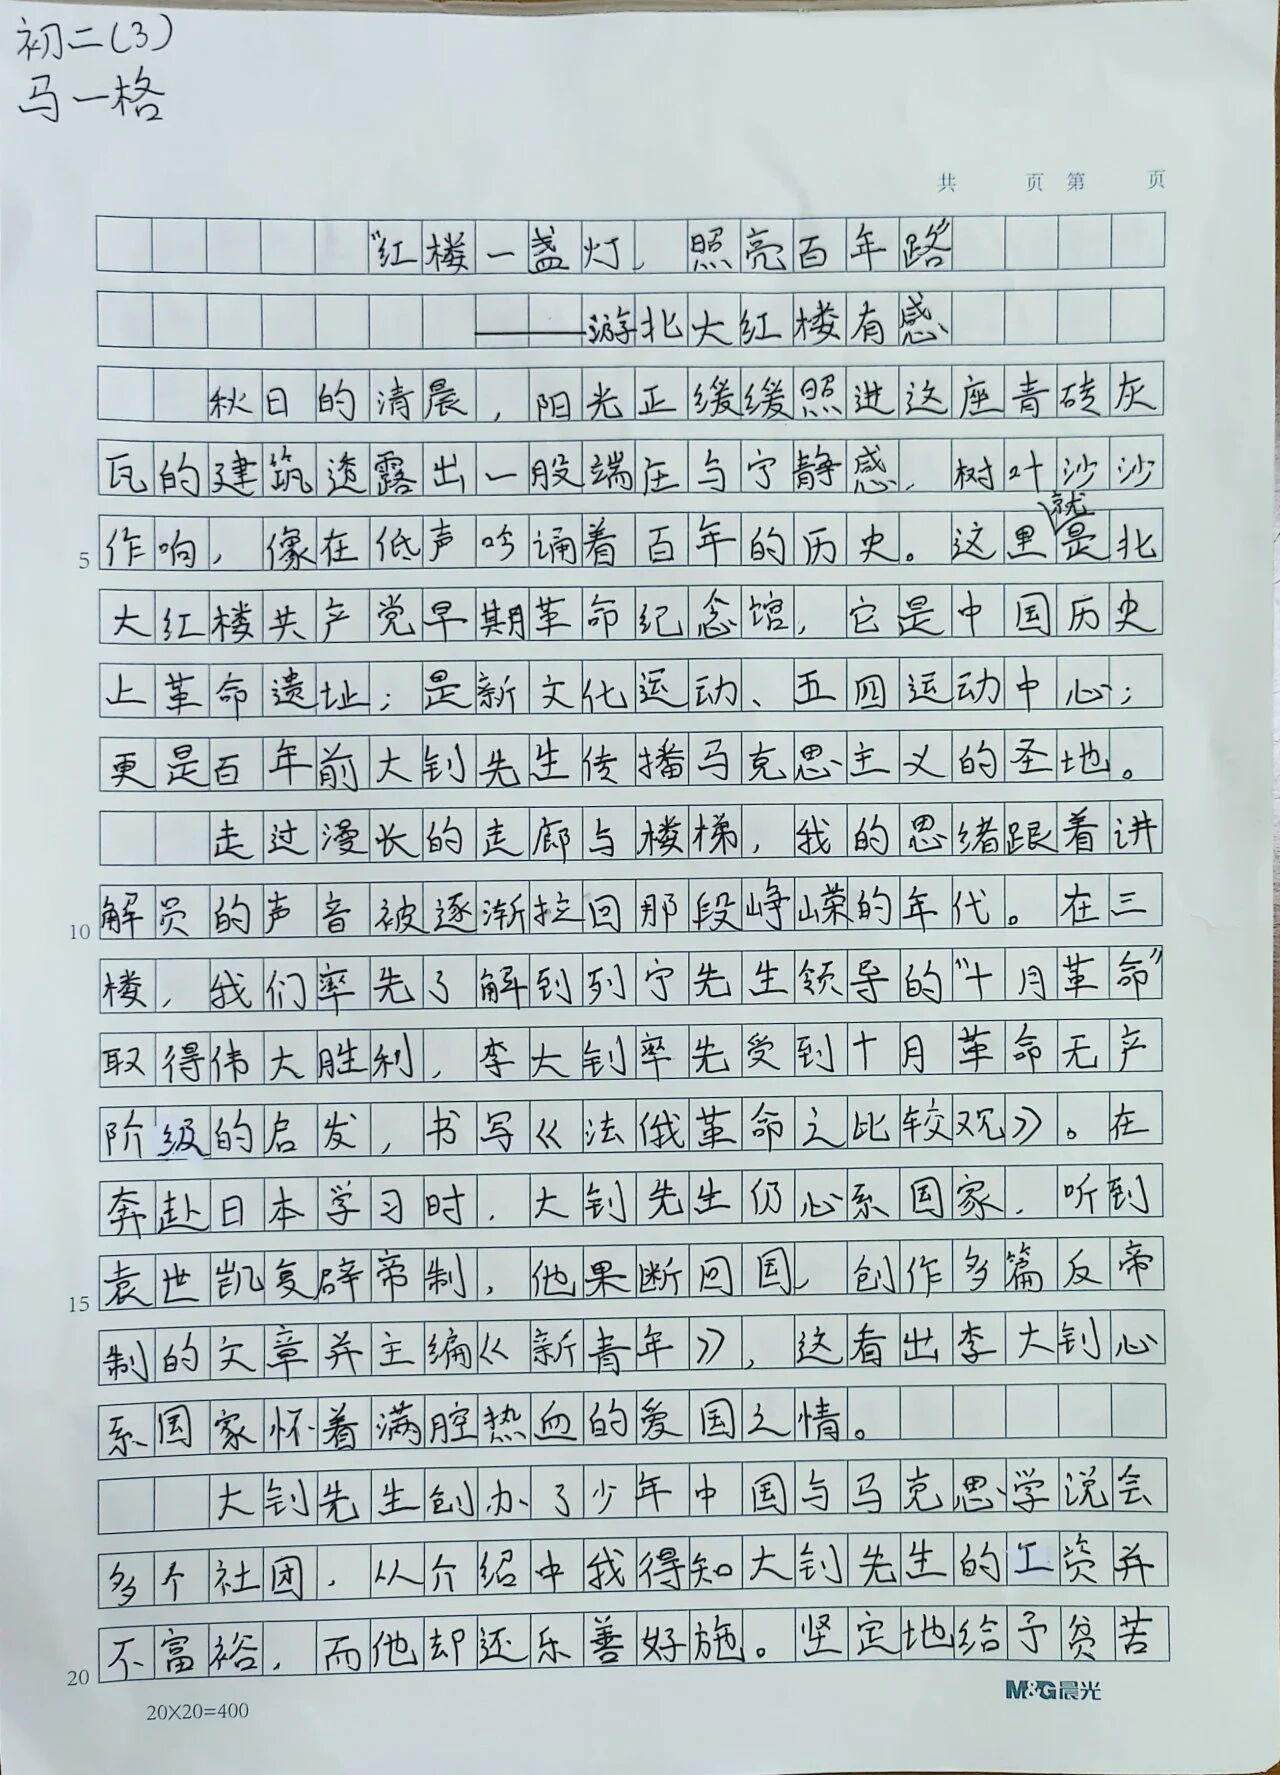 初二(3)
马一格
共 页 第 页
“红楼一盏灯，照亮百年路”
——游北大红楼有感
秋日的清晨，阳光正缓缓照进这座青砖灰
瓦的建筑透露出一股端庄与宁静感，树叶沙沙
5 作响，像在低声吟诵着百年的历史。这里就是北
大红楼共产党早期革命纪念馆，它是中国历史
上革命遗址；是新文化运动、五四运动中心；
更是百年前大钊先生传播马克思主义的圣地。
走过漫长的走廊与楼梯，我的思绪跟着讲
10 解员的声音被逐渐拉回那段峥嵘的年代。在三
楼，我们率先了解到列宁先生领导的“十月革命”
取得伟大胜利，李大钊率先受到十月革命无产
阶级的启发，书写《法俄革命之比较观》。在
奔赴日本学习时，大钊先生仍心系国家，听到
15 袁世凯复辟帝制，他果断回国，创作多篇反帝
制的文章并主编《新青年》，这看出李大钊心
系国家怀着满腔热血的爱国之情。
大钊先生创办了少年中国与马克思学说会
多个社团，从介绍中我得知大钊先生的工资并
20 不富裕，而他却还乐善好施。坚定地给予贫苦
20×20=400
M&G晨光